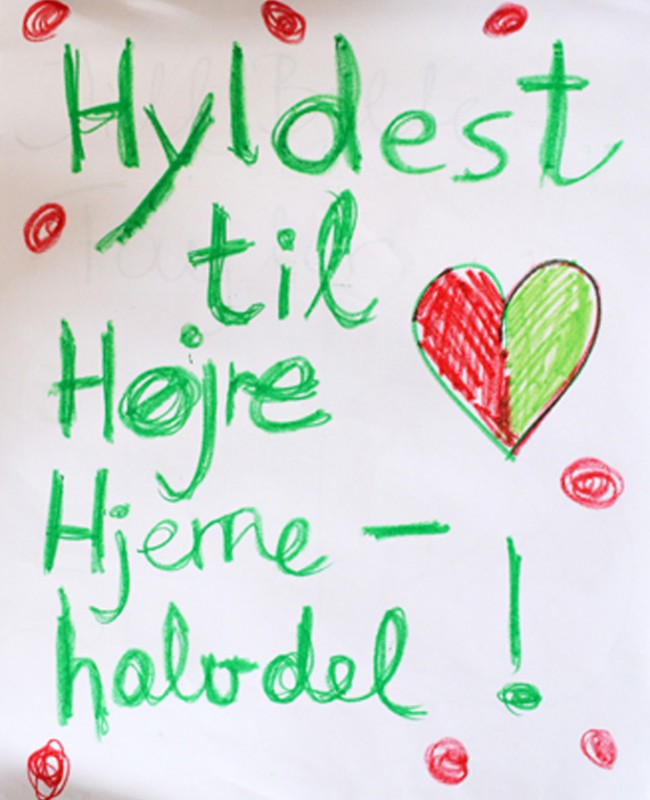 Hyldest
til
Højre
Hjerne -
halvdel !